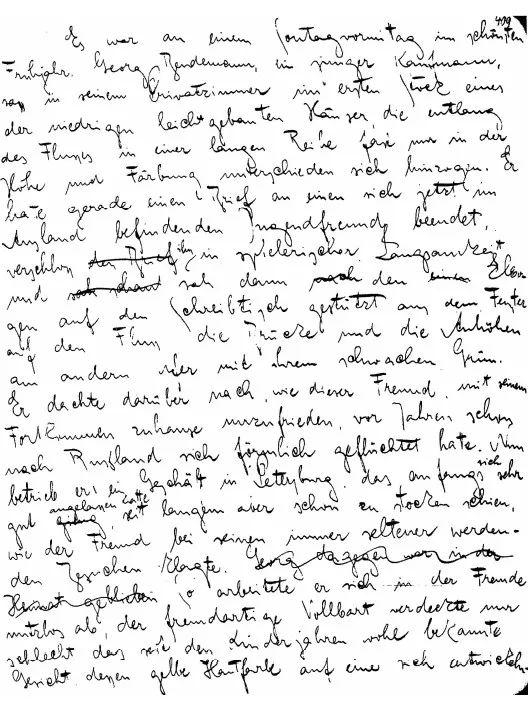 499
Es war an einem Sontagvormitag im schönsten
Frühjahr. Georg Bendemann, ein junger Kaufmann,
sass in seinem Privatzimmer im ersten Stock eines
der niedrigen leichtgebauten Häuser, die entlang
des Flusses in einer langen Reihe fast nur in der
Höhe und Färbung unterschieden sich hinzogen. Er
hatte gerade einen Brief an einen sich jetzt im
Ausland befindenden Jugendfreund beendet,
verschloss der Brief ihn in spielerischer Langsamkeit
und sah dann nach den einen Elbo
gen auf den Schreibtisch gestützt aus dem Fenster
auf den Fluss die Brücke und die Anhöhen
am andern Ufer mit ihrem schwachen Grün.
Er dachte darüber nach, wie dieser Freund, mit seinem
Fortkommen zuhause unzufrieden, vor Jahren schon
nach Russland sich förmlich geflüchtet hate. Nun
betrieb er ein Geschäft in Petersburg, das anfangs sich sehr
gut angelassen hatte gieng, seit langem aber schon zu stocken schien,
wie der Freund bei seinen immer seltener werden-
den Besuchen klagte. Georg dagegen war in der
Heimat geblieben So arbeitete er sich in der Fremde
nutzlos ab, der fremdartige Vollbart verdeckte nur
schlecht das seit den Kinderjahren wohl bekannte
Gesicht dessen gelbe Hautfarbe auf eine sich entwickeln-